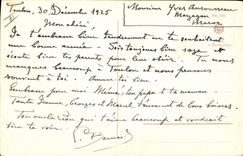 Toulon, 30 Décembre 1925
Monsieur Yves
Mazagan
Maroc
Mon chéri,
Je t'embrasse bien tendrement en te souhaitant
une bonne année. Sois toujours bien sage et
écoute bien tes parents pour leur obéir. Tu nous
manques beaucoup à Toulon et nous pensons
souvent à toi.
Embrasse pour moi Mémé, ton papa et ta maman
Tante Jeanne, Georges et Marcel
Ton oncle qui t'aime beaucoup et voudrait
bien te voir.